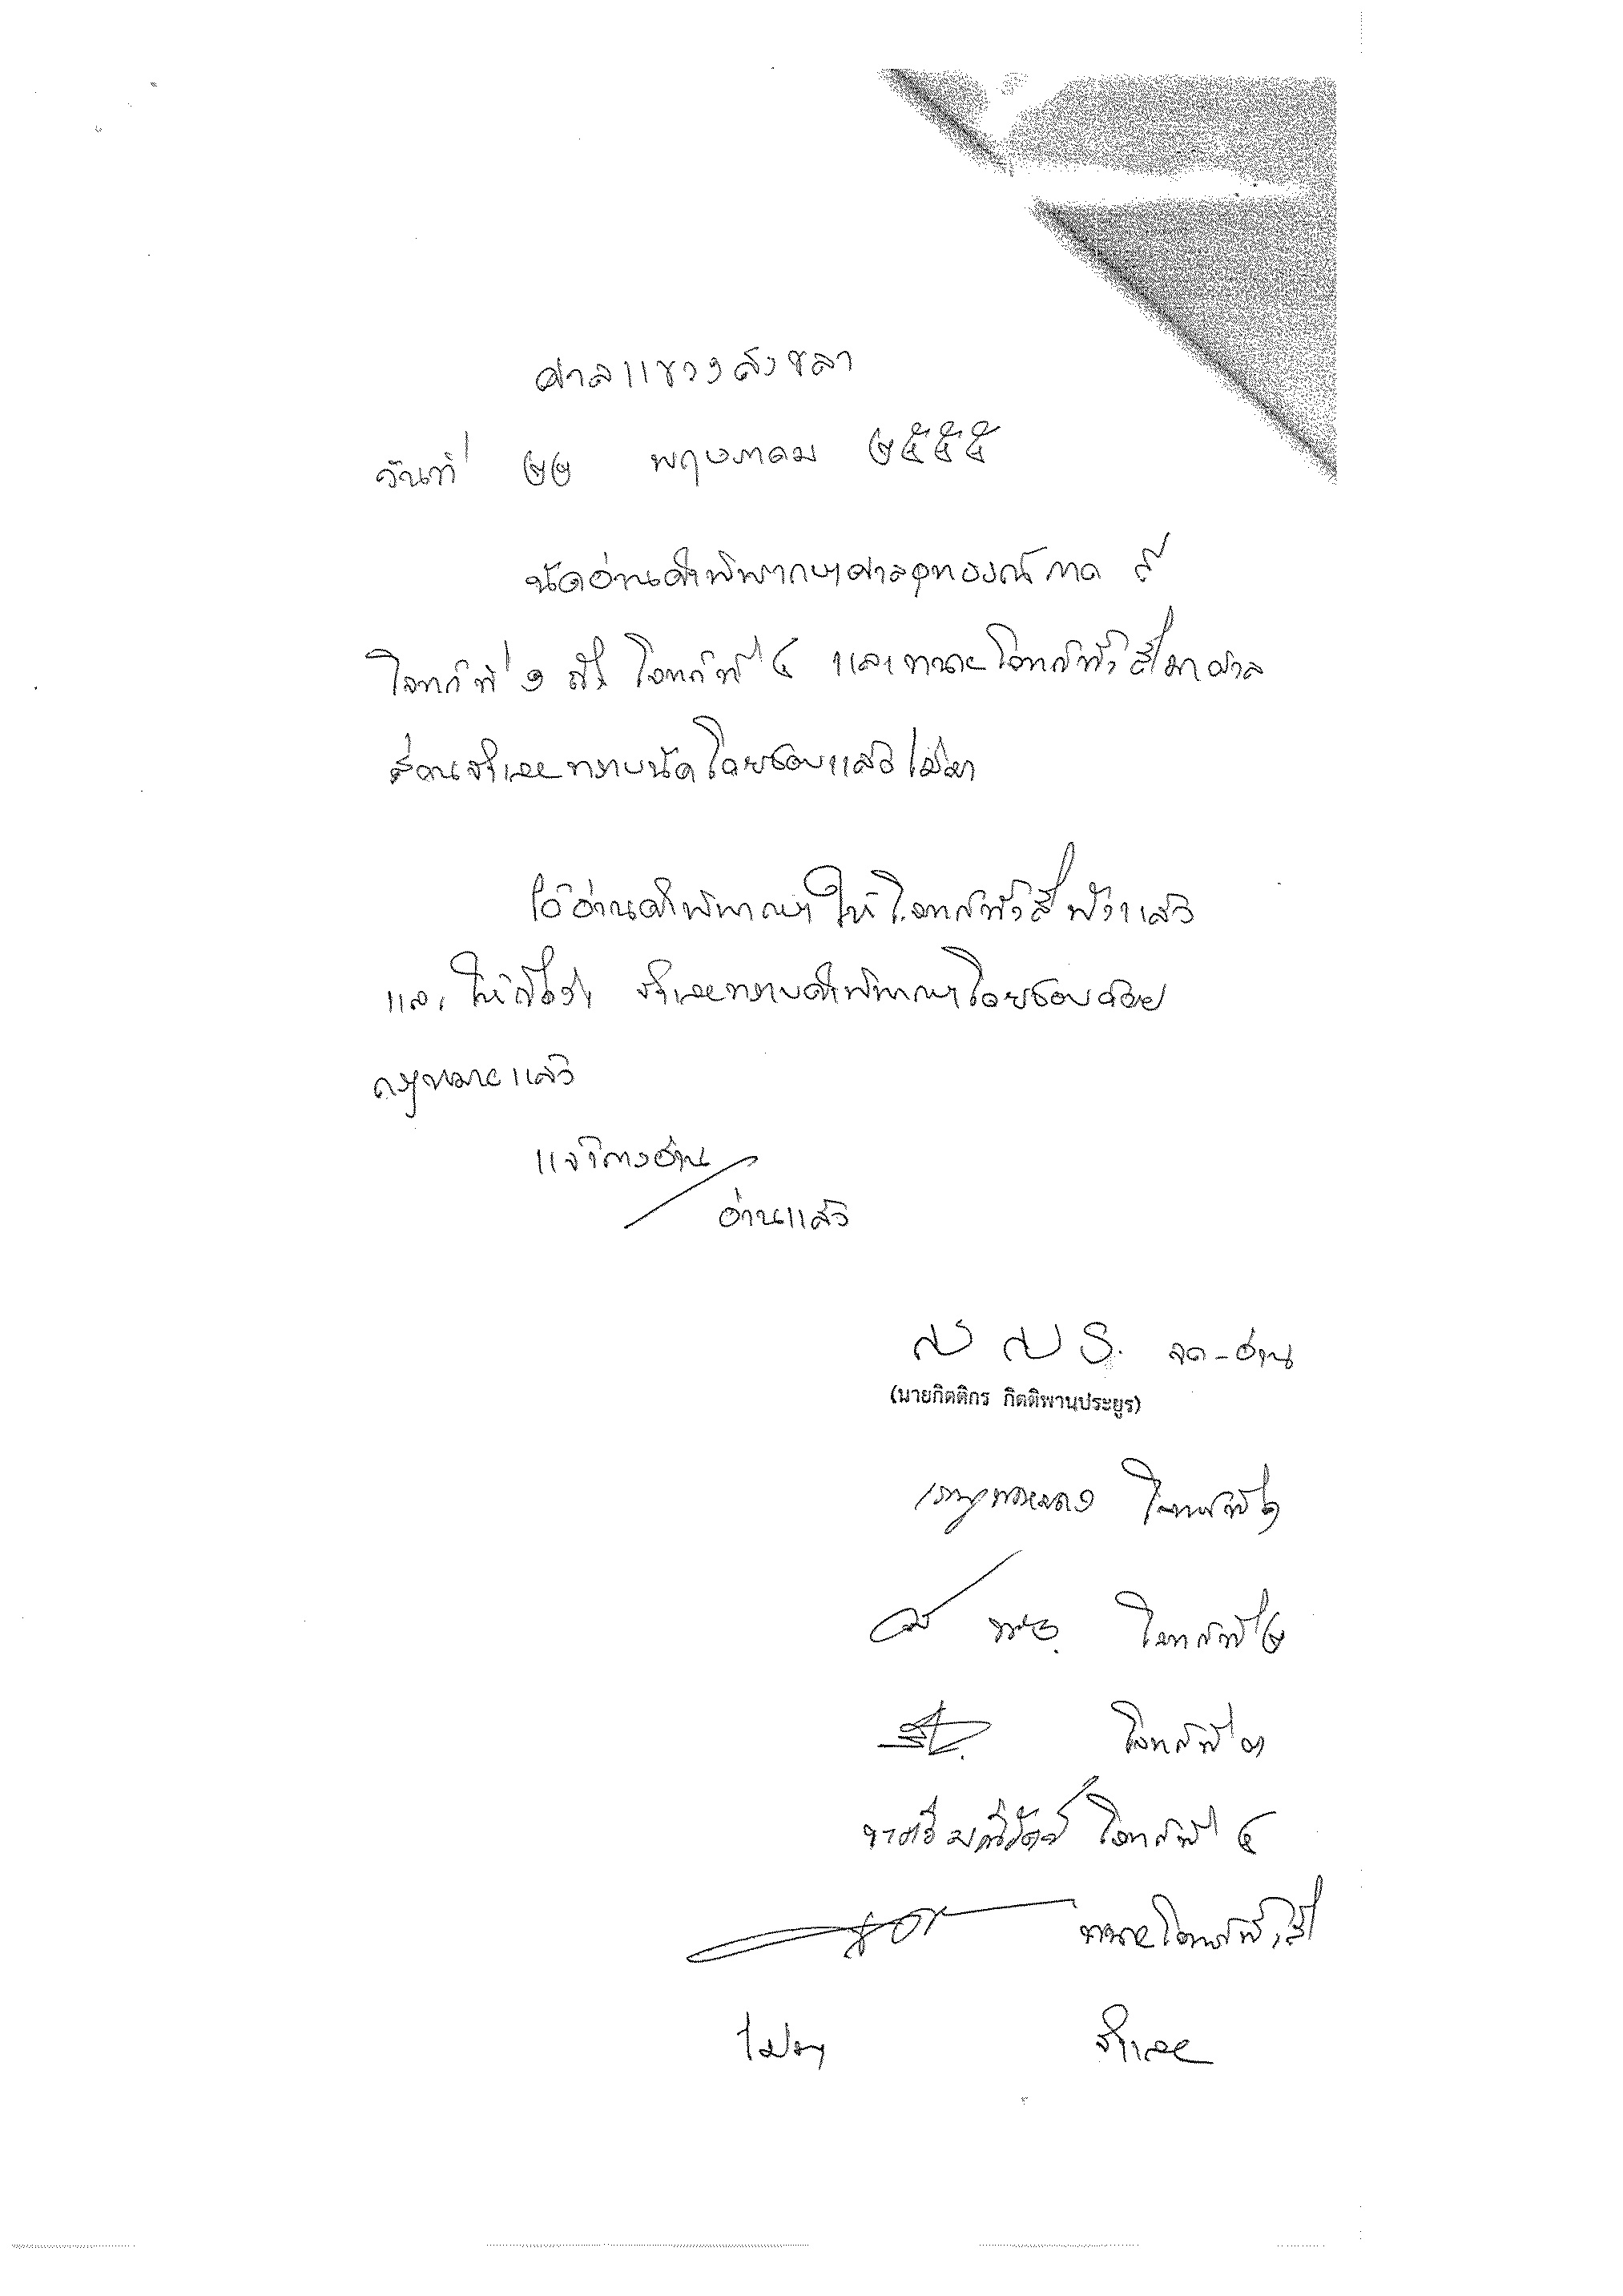 ศาลแขวงสงขลา
วันที่ ๒๒ พฤษภาคม ๒๕๕๕
นัดอ่านคำพิพากษาศาลอุทธรณ์ภาค ๙
โจทก์ที่ ๑ ถึง โจทก์ที่ ๔ และทนายโจทก์ทั้งสี่มาศาล
ส่วนจำเลยทราบนัดโดยชอบแล้วไม่มา
ได้อ่านคำพิพากษาให้โจทก์ทั้งสี่ฟังแล้ว
และให้ถือว่า จำเลยทราบคำพิพากษาโดยชอบด้วย
กฎหมายแล้ว
แจ้งการอ่าน
อ่านแล้ว
จด-อ่าน
(นายกิตติกร กิตติพานประยูร)
โจทก์ที่ ๑
โจทก์ที่ ๒
โจทก์ที่ ๓
โจทก์ที่ ๔
ทนายโจทก์ทั้งสี่
ไม่มา จำเลย